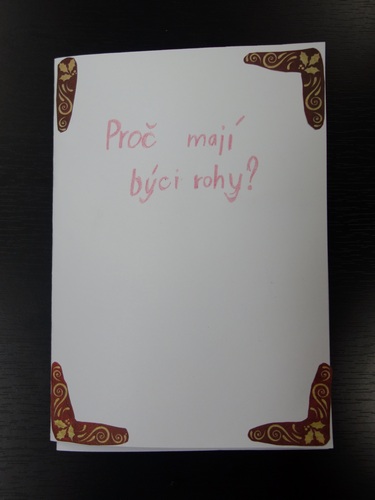 Proč mají
býci rohy?